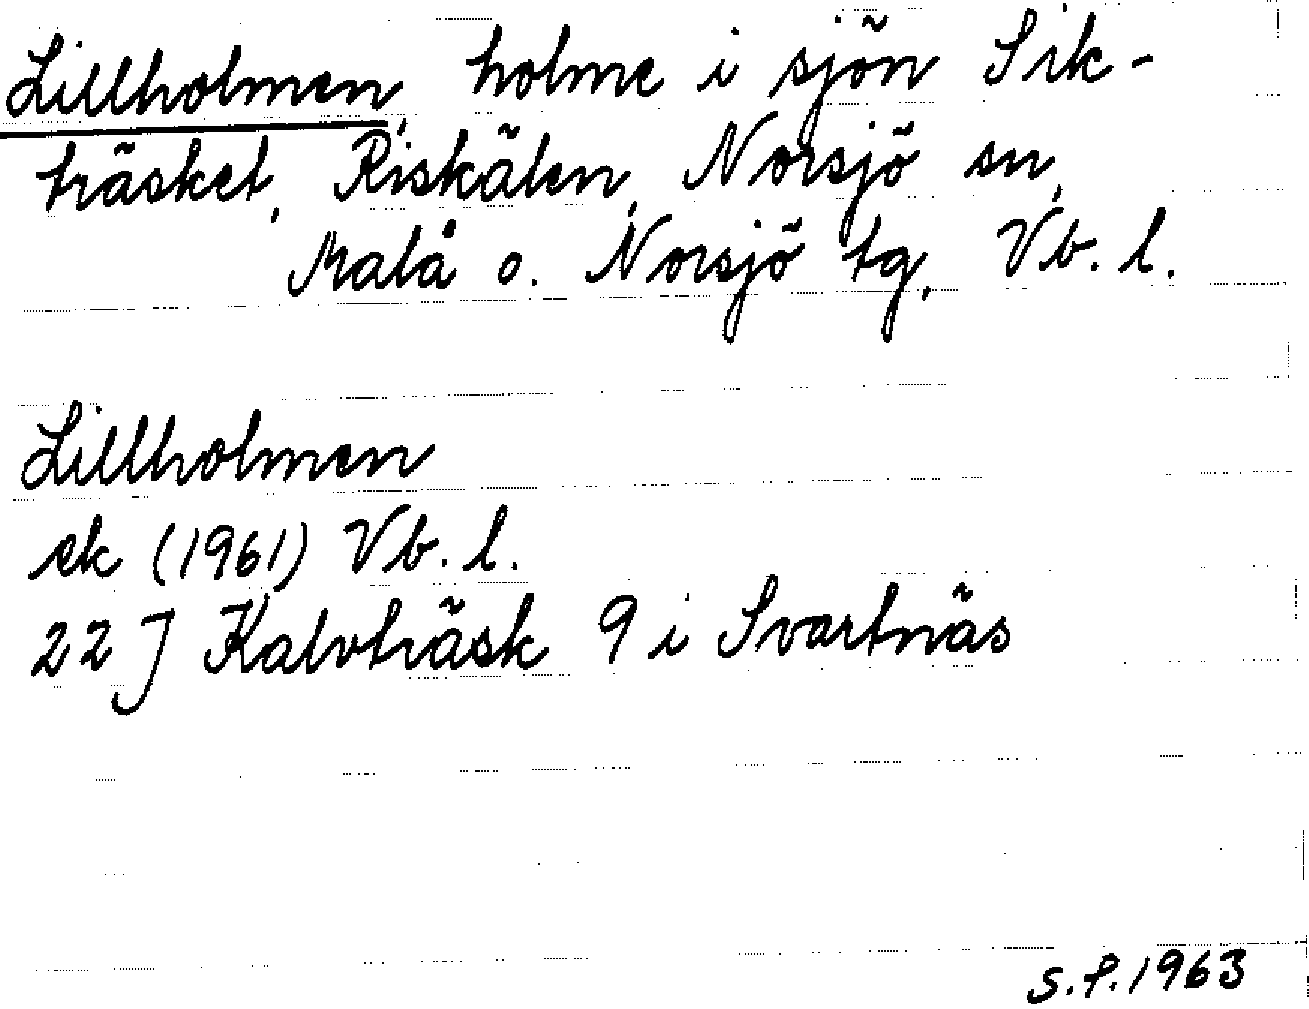 Lillholmen, holme i sjön Sik-
träsket, Riskälen, Norsjö sn,
Malå o. Norsjö tg, Vb. l.
Lillholmen
ek (1961) Vb. l.
22 J Kalvträsk 9 i Svartnäs
S.P. 1963